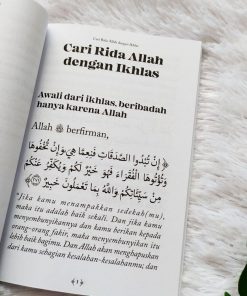 Cari Rida Allah dengan Ikhlas
Cari Rida Allah
dengan Ikhlas
Awali dari ikhlas, beribadah
hanya karena Allah
Allah ﷻ berfirman,
إِنْ تُبْدُوا الصَّدَقَاتِ فَنِعِمَّا هِيَ وَإِنْ تُخْفُوهَا
وَتُؤْتُوهَا الْفُقَرَاءَ فَهُوَ خَيْرٌ لَكُمْ وَيُكَفِّرُ عَنْكُمْ
مِنْ سَيِّئَاتِكُمْ وَاللَّهُ بِمَا تَعْمَلُونَ خَبِيرٌ
"Jika kamu menampakkan sedekah(mu),
maka itu adalah baik sekali. Dan jika kamu
menyembunyikannya dan kamu berikan kepada
orang-orang fakir, maka menyembunyikan itu
lebih baik bagimu. Dan Allah akan menghapuskan
dari kamu sebagian kesalahan-kesalahanmu; dan